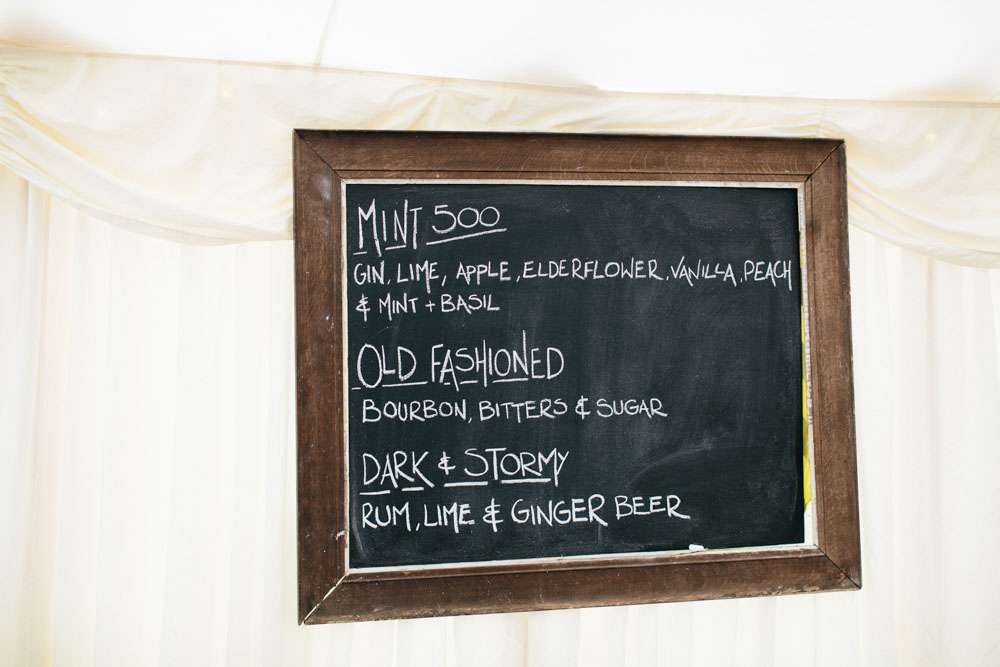 MINT 500
GIN, LIME, APPLE, ELDERFLOWER, VANILLA, PEACH
& MINT + BASIL
OLD FASHIONED
BOURBON, BITTERS & SUGAR
DARK & STORMY
RUM, LIME & GINGER BEER